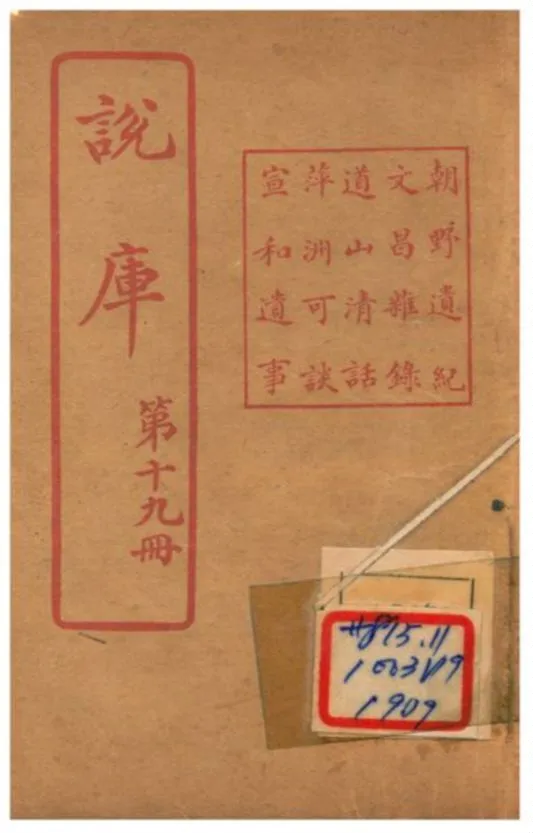 說庫
第十九冊
朝野遺紀
文昌雜錄
道山清話
萍洲可談
宣和遺事
#895.11
1909